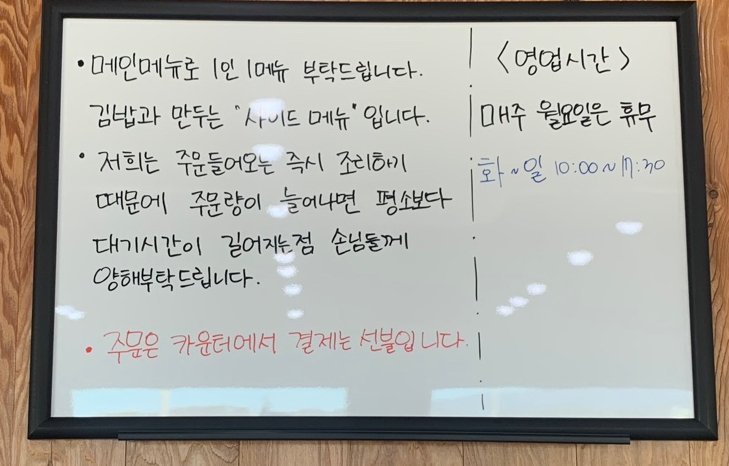 • 메인메뉴로 1인 1메뉴 부탁드립니다.
김밥과 만두는 "사이드 메뉴" 입니다.
• 저희는 주문들어오는 즉시 조리하기
때문에 주문량이 늘어나면 평소보다
대기시간이 길어지는점 손님들께
양해부탁드립니다.
• 주문은 카운터에서 결제는 선불입니다.
<영업시간>
매주 월요일은 휴무
화~일 10:00~17:30